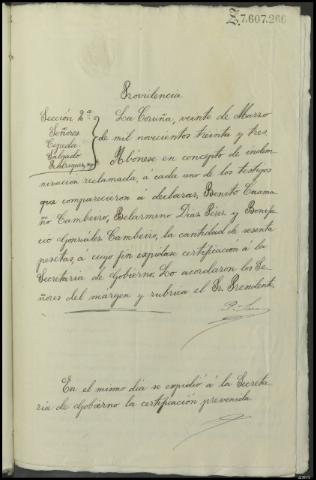 Z.7.607.266
Providencia
Sección 2ª
Señores
Tejada
Salgado
Rodríguez
La Coruña, veinte de Marzo
de mil novecientos treinta y tres.
Abónese en concepto de indem
nización reclamada, á cada uno de los testigos
que comparecieron á declarar, Benito Caama
ño Cambeiro, Belarmino Díaz Pérez y Bonifa
cio González Cambeiro, la cantidad de sesenta
pesetas, á cuyo fin expidase certificación á la
Secretaría de Gobierno. Lo acordaron los Se
ñores del margen y rubrica el Sr. Presidente.
En el mismo día se expidió á la Secreta
ria de Gobierno la certificación prevenida